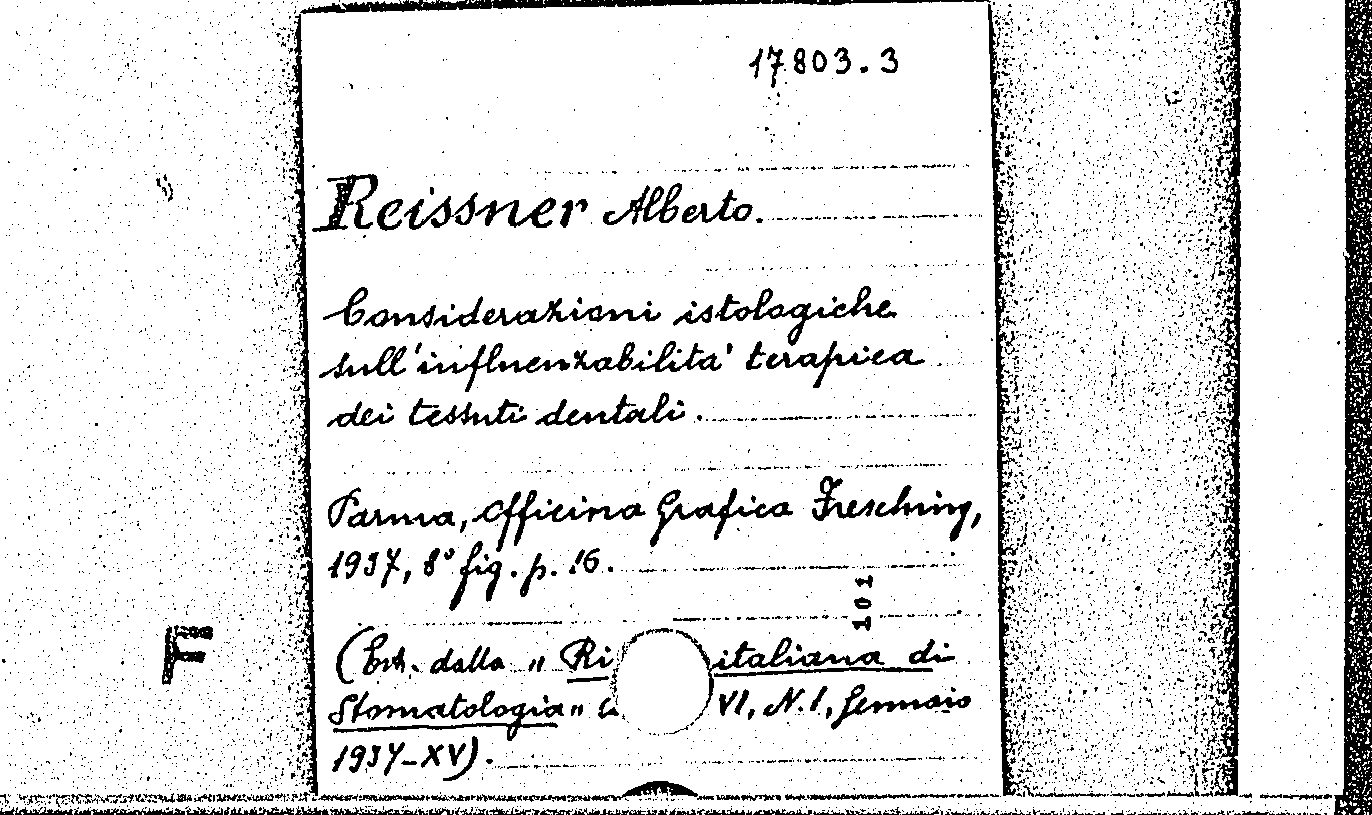 17803.3
Reissner Alberto.
Considerazioni istologiche
sull'influenzabilita' terapica
dei tessuti dentali.
Parma, Officina Grafica Fresching,
1937, 8° fig. p. 16.
101
(Estr. dalla " Ri italiana di
Stomatologia" VI, N.1, Gennaio
1937-XV).
F